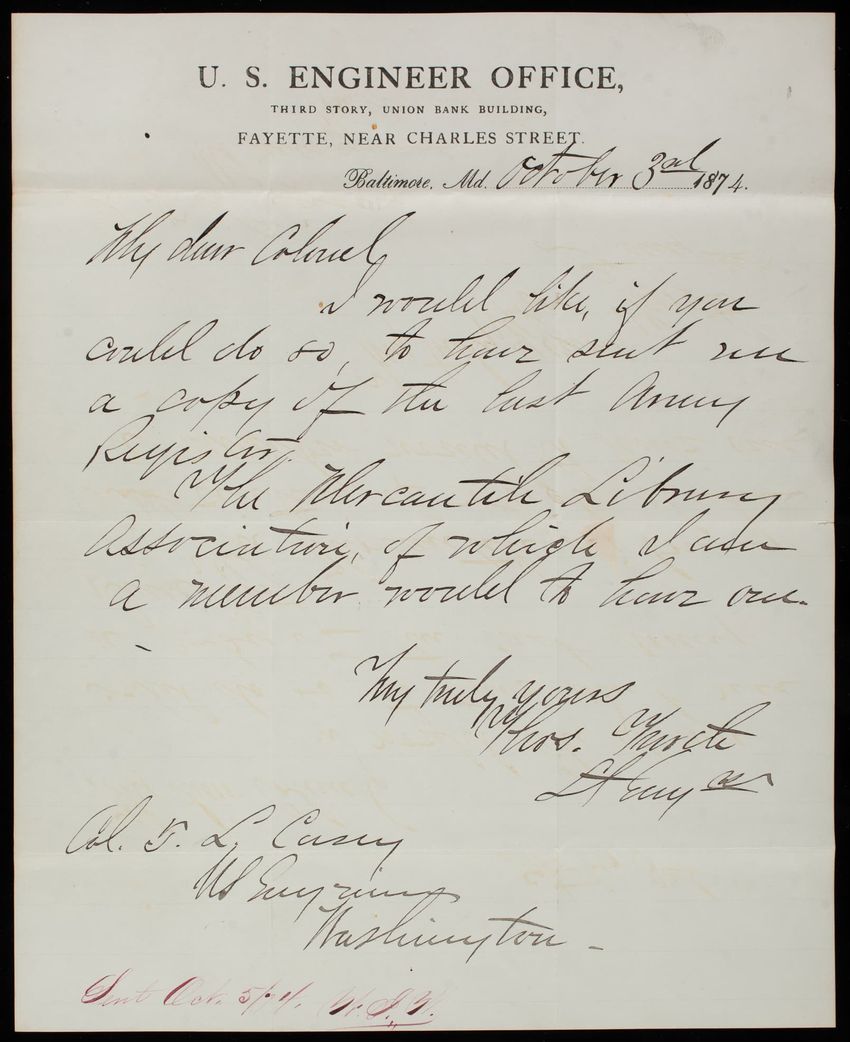 U. S. ENGINEER OFFICE,
THIRD STORY, UNION BANK BUILDING,
FAYETTE, NEAR CHARLES STREET.
Baltimore, Md. October 3rd 1874.
My dear Colonel
I would like, if you
could do so, to have sent me
a copy of the last Army
Register.
The Mercantile Library
Association, of which I am
a member would to have one.
Very truly yours
Thos. Turtle
Lt Engrs
Col. T. L. Casey
US Engineers
Washington
Sent Oct. 5/74.